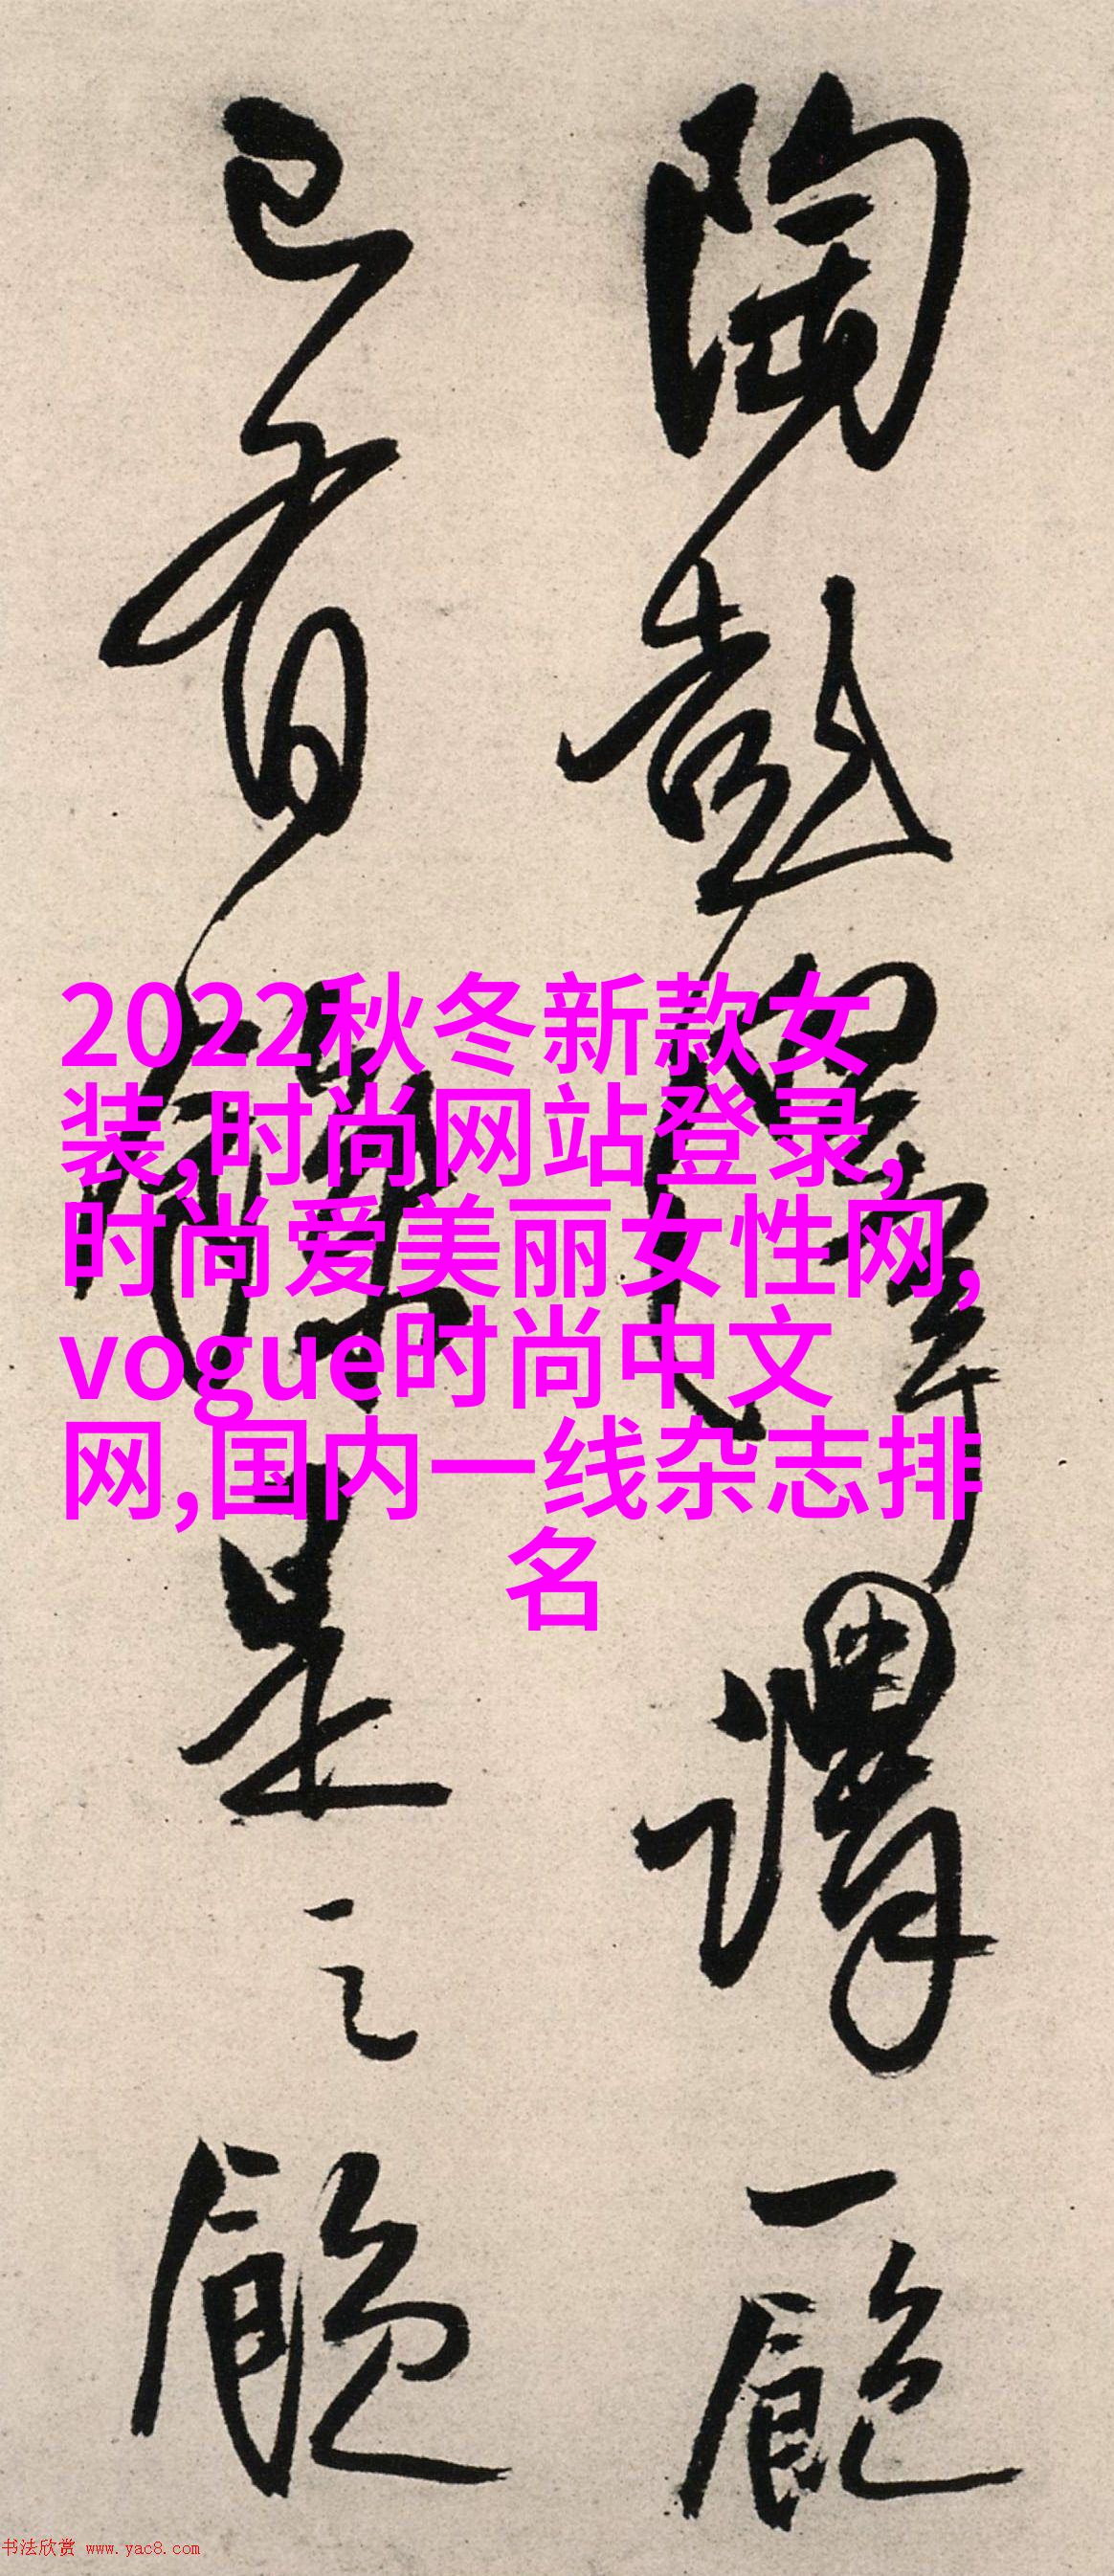 陶彭澤謂一飽
已有是之
2022秋冬新款女
装,时尚网站登录,
时尚爱美丽女性网,
vogue时尚中文
网,国内一线杂志排
名
书法欣赏 www.yac8.com